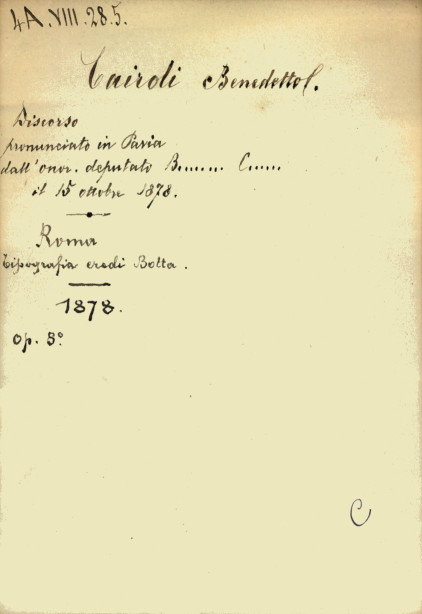 4A.VIII.28.5.
Cairoli Benedetto C.
Discorso
pronunciato in Pavia
dall'onor. deputato B....... C.....
il 15 ottobre 1878.
Roma
tipografia eredi Botta.
1878.
Op. 8°
C